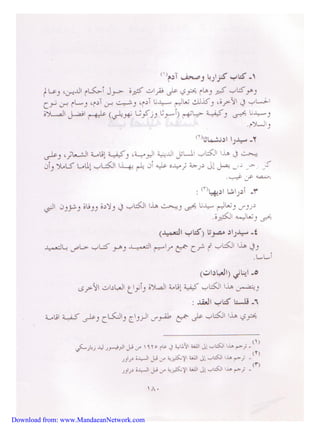 ١- كتاب كنزاربا وصحف آدم(١)
وهو كتاب كبير وهام يحتوي على فقرات كثيرة حول أحكام الدين، وعالم
الحساب في الآخرة، وكذلك تعاليم سيدنا آدم، وشيت بن آدم، وسام بن نوح
وسيدنا يحيى وكيفية حياتهم عليهم افضل الصلاة
والسلام.
٢- سيدرا ادنشماثا(٢)
يبحث في هذا الكتاب المسائل الدينية اليومية، وكيفية إقامة الشعائر، وعلى
يصل إلى درجة ترميذه عليه أن يلم بهذا الكتاب إلمامة كاملا وأن
يحفظه عن غيب.
٣- أدراشا اديهيا(٣):
دروس وتعاليم سيدنا يحيى ويبحث هذا الكتاب في ولادة ووفاة وشؤون النبي
يحيى وتعاليمه الكثيرة.
٤- سيدراد مصوتا (كتاب التعميد)
وفي هذا الكتاب تم شرح جميع مراسيم التعميد وهو كتاب خاص بالتعميد
أساسا.
٥- اينياني (العبادات)
ويتضمن هذا الكتاب كيفية إقامة الصلاة وأنواع العبادات الأخرى
٦- قلستا كتاب العقد:
يحتوي هذا الكتاب على جميع طقوس الزواج والنكاح وعلى كيفية اقامة
(١) - ترجم هذا الكتاب إلى اللغة الألمانية في عام ١٩٢٥ من قبل البروفيسور ليد زبارسكي
(٢) - ترجم هذا الكتاب إلى اللغة الإنكليزية من قبل السيدة دراور
(٣) - ترجم هذا الكتاب إلى اللغة الإنكليزية من قبل السيدة دراور
١٨٠
Download from: www.MandaeanNetwork.com